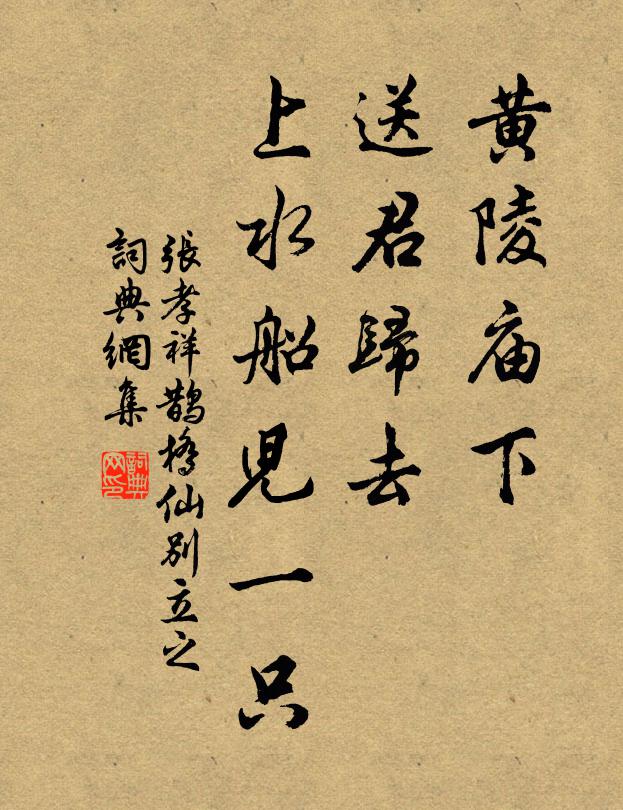 黄陵庙下
送君歸去
上水船兒一只
張孝祥鵲橋仙别立之
詞典網集
詞典网印